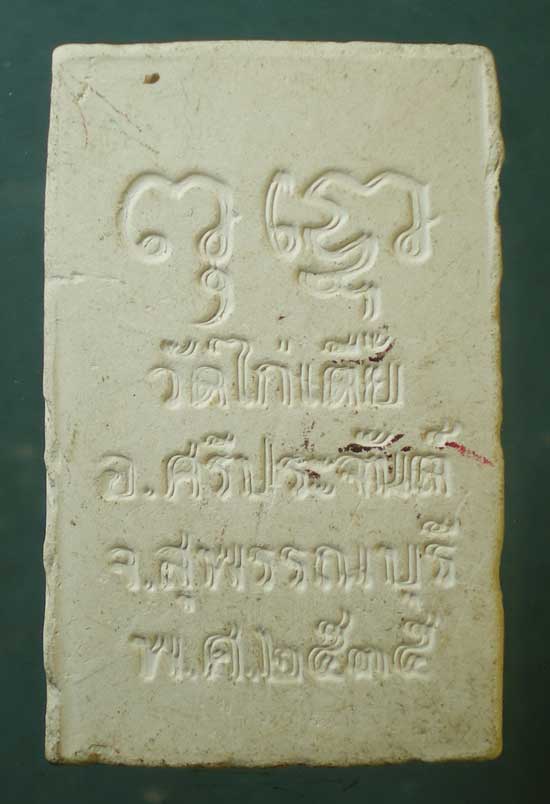 วัดไก่เตี้ย
อ.ศรีประจันต์
จ.สุพรรณบุรี
พ.ศ.๒๕๓๕